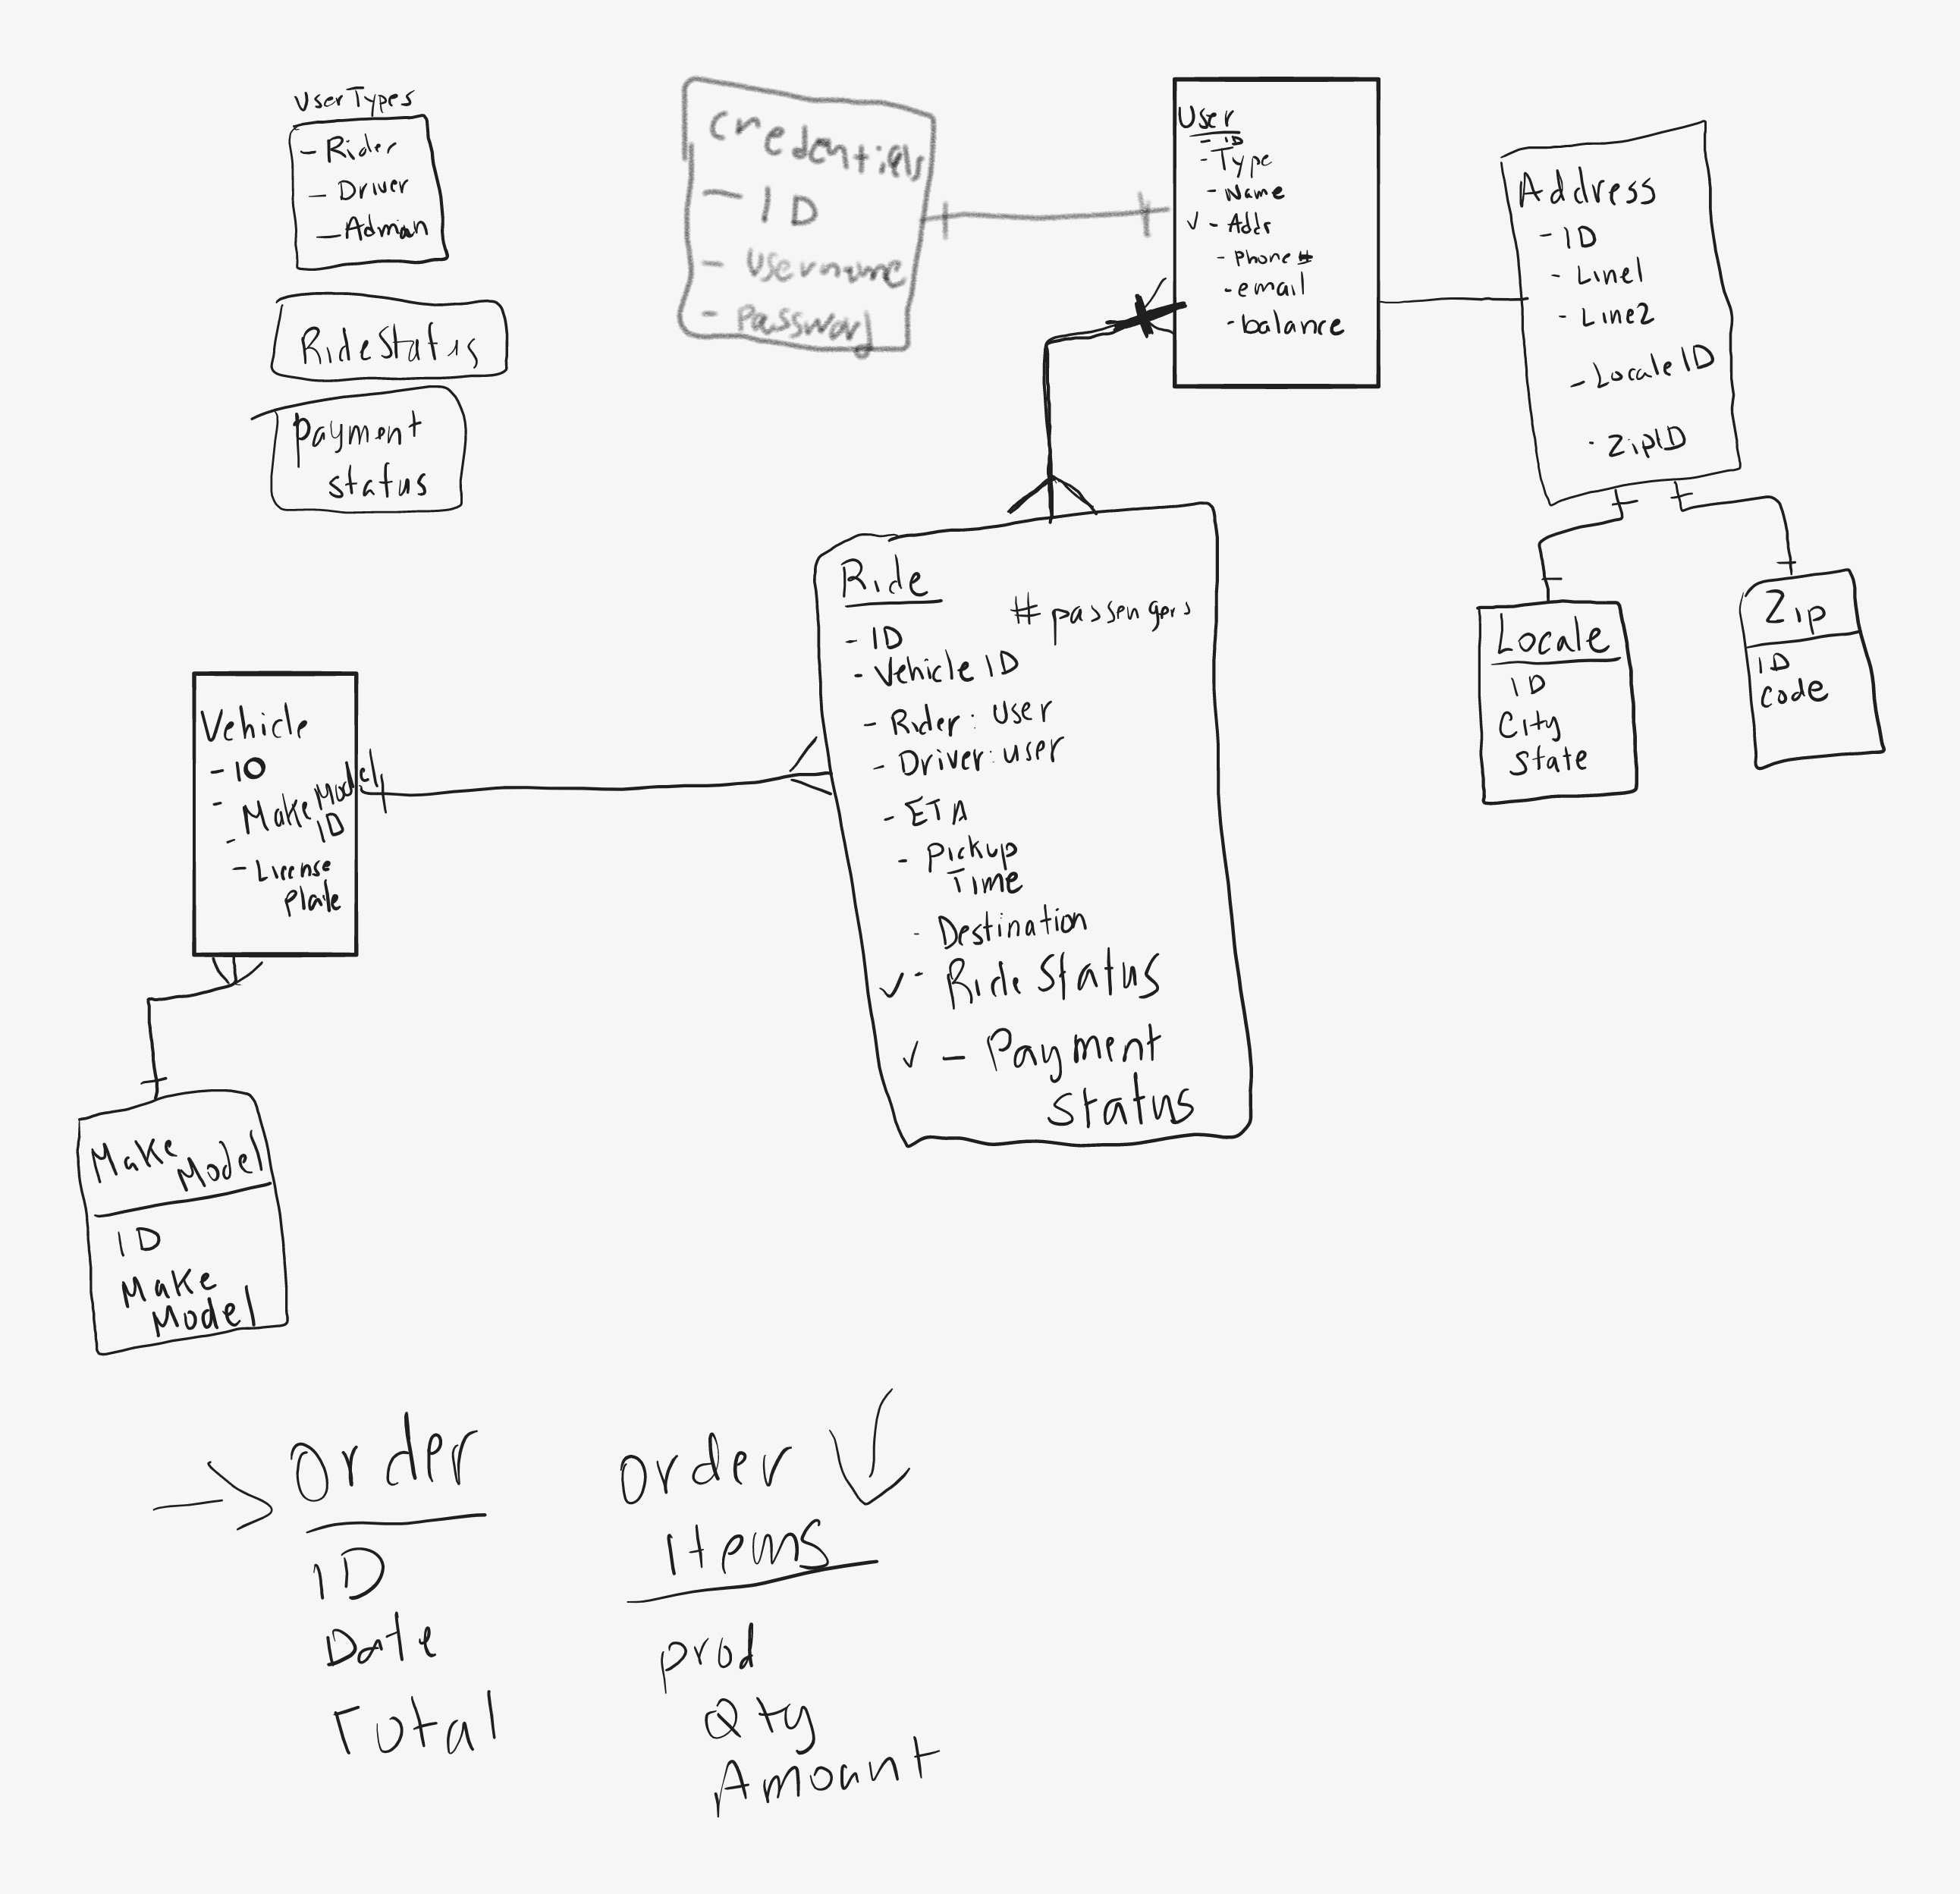 UserTypes
- Rider
- Driver
- Admin
RideStatus
payment
status
credentials
- ID
- username
- password
User
- ID
- Type
- Name
✓ - Addr
- phone #
- email
- balance
Address
- ID
- Line1
- Line2
- LocaleID
- ZipID
Locale
ID
City
State
Zip
ID
code
Ride
# passengers
- ID
- Vehicle ID
- Rider: User
- Driver: user
- ETA
- Pickup
Time
- Destination
✓ - Ride Status
✓ - Payment
status
Vehicle
- ID
- Make Model
- ID
- License
plate
Make
Model
ID
Make
Model
→ Order
ID
Date
Total
order
items
prod
Qty
Amount